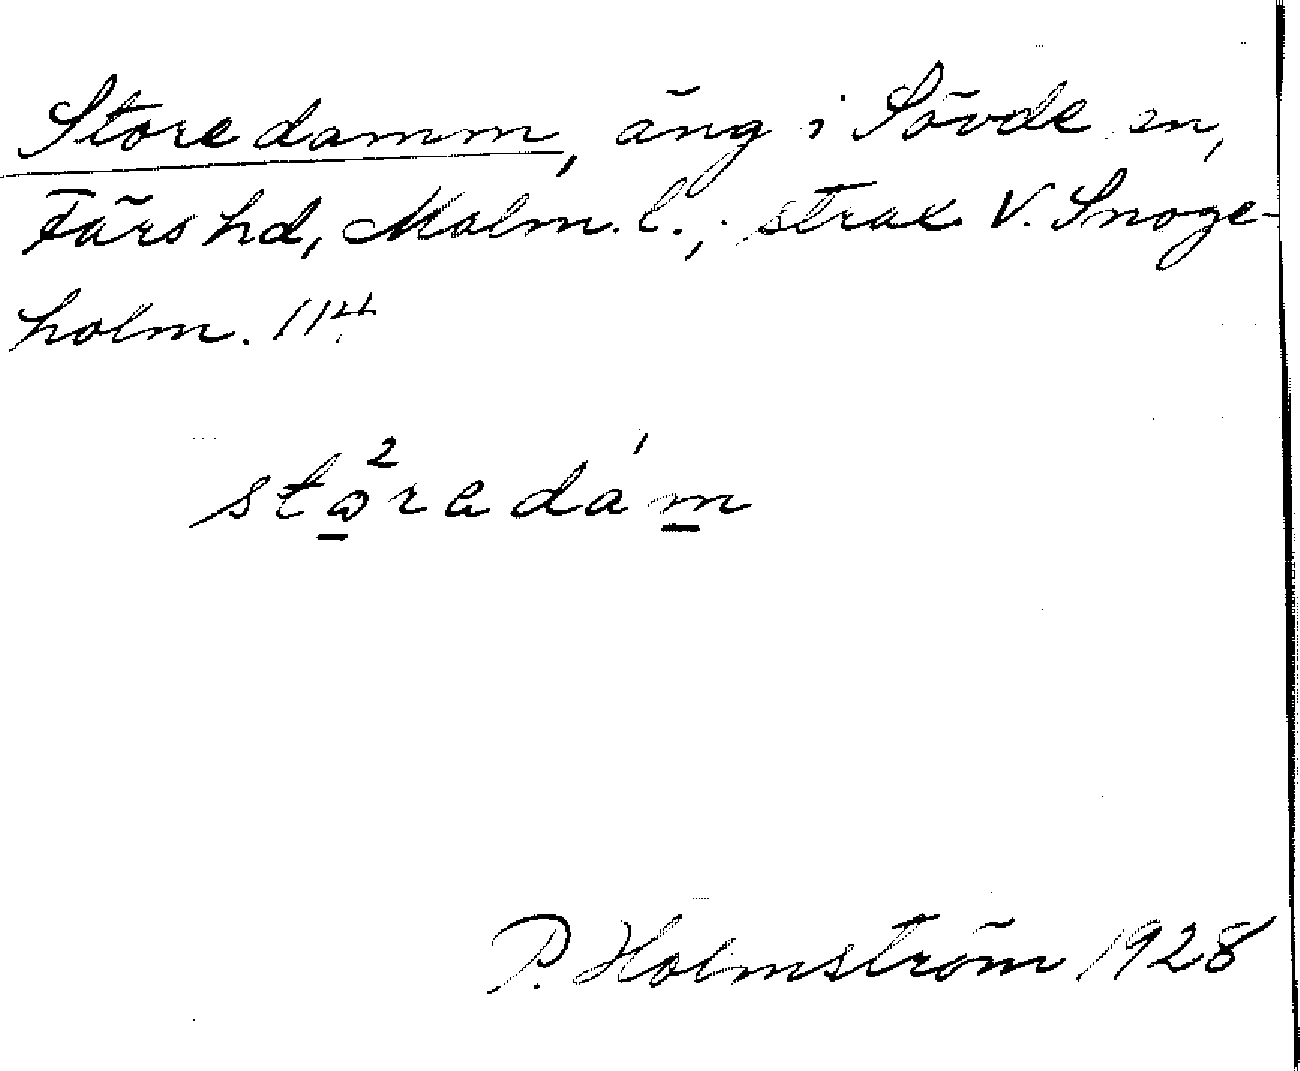 Store damm, äng i Sövde sn,
Färs hd, Malm. l.; strax V. Snoge-
holm. 114
storadam
P. Holmström 1928